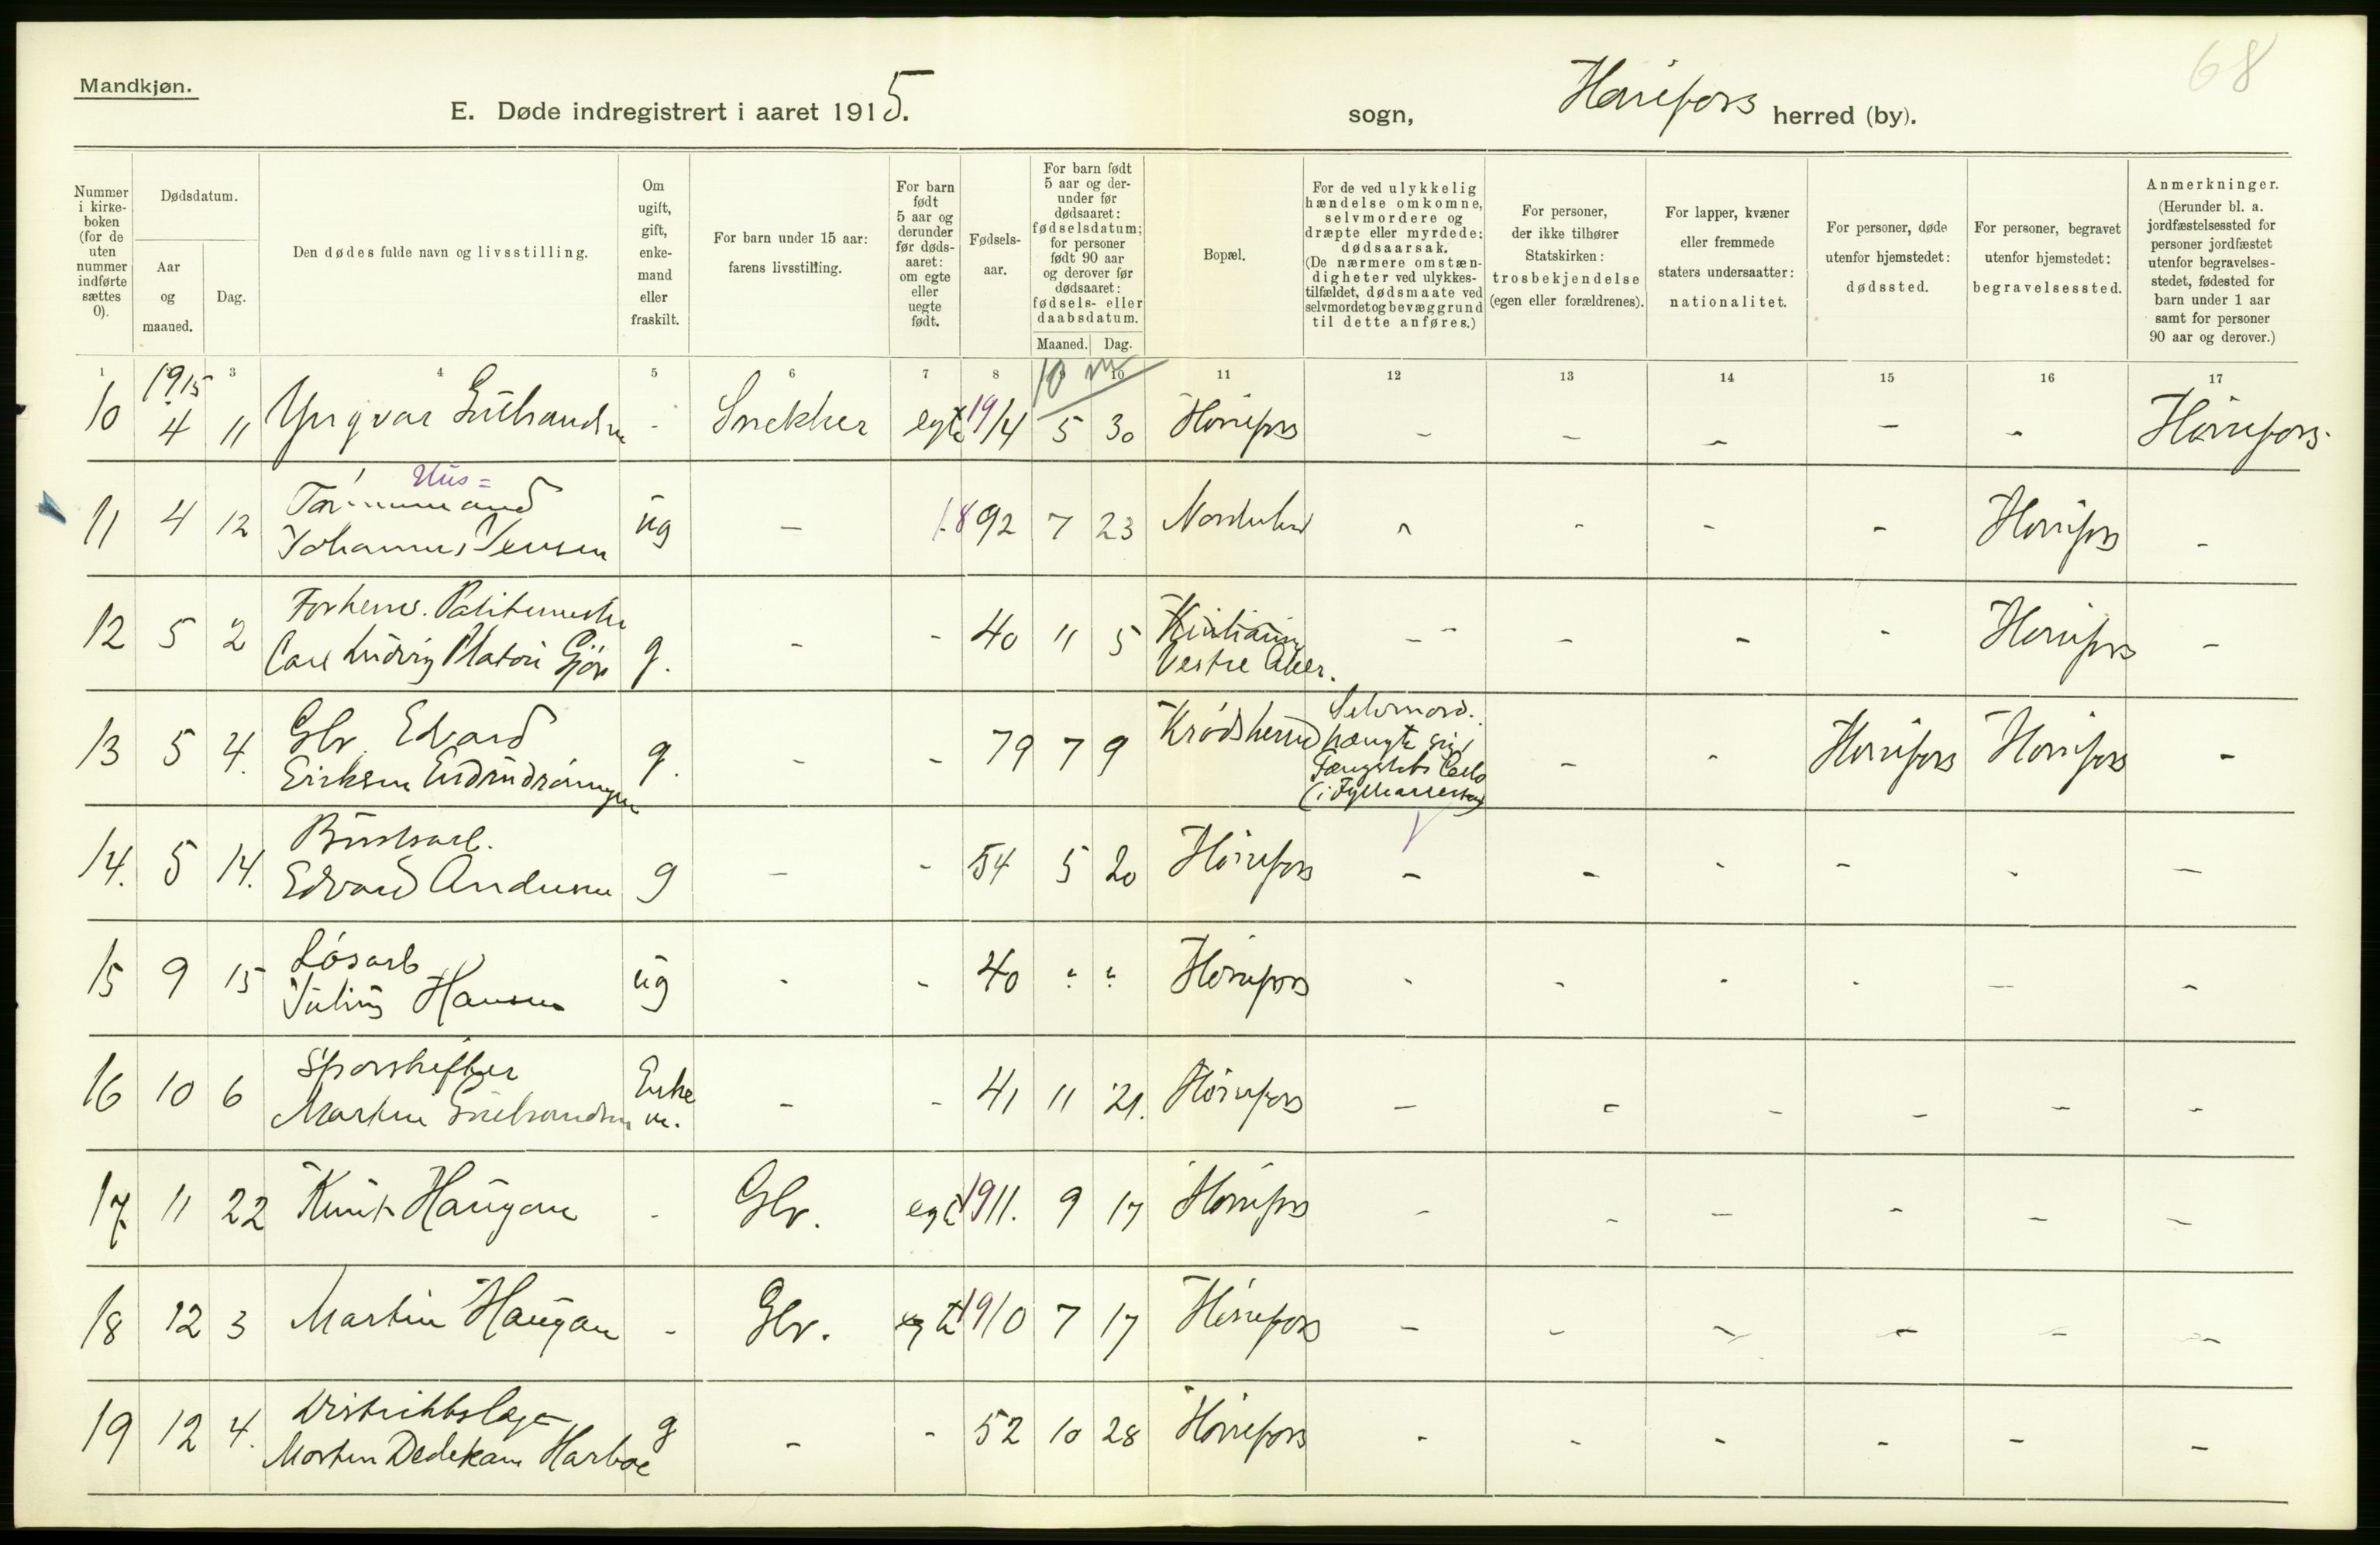 68
Mandkjøn.
E. Døde indregistrert i aaret 1915.
sogn, Hønefoss herred (by).
Nummer i kirke-boken (for de uten nummer indførte sættes 0).
Dødsdatum.
Aar og maaned.
Dag.
Den dødes fulde navn og livsstilling.
Om ugift, gift, enke-mand eller fraskilt.
For barn under 15 aar: farens livsstilling.
For barn født 5 aar og derunder før døds-aaret: om egte eller uegte født.
Fødsels-aar.
For barn født 5 aar og der-under før dødsaaret: fødselsdatum; for personer født 90 aar og derover før dødsaaret: fødsels- eller daabsdatum.
Maaned. Dag.
Bopæl.
For de ved ulykkelig hændelse omkomne, selvmordere og dræpte eller myrdede: dødsaarsak. (De nærmere omstæn-digheter ved ulykkes-tilfældet, dødsmaate ved selvmordet og bevæggrund til dette anføres.)
For personer, der ikke tilhører Statskirken: trosbekjendelse (egen eller forældrenes).
For lapper, kvæner eller fremmede staters undersaatter: nationalitet.
For personer, døde utenfor hjemstedet: dødssted.
For personer, begravet utenfor hjemstedet: begravelsessted.
Anmerkninger. (Herunder bl. a. jordfæstelsessted for personer jordfæstet utenfor begravelses-stedet, fødested for barn under 1 aar samt for personer 90 aar og derover.)
1 3 4 5 6 7 8 9 10 11 12 13 14 15 16 17
1915 10 m
10 4 11 Yngvar Gulbrandsen - Snekker egte 19/4 5 30 Hønefoss - - - - - Hønefoss.
Hus=
Tømmermand
11 4 12 Johannes Jensen ug - 1892 7 23 Norderhov - - - - Hønefoss -
Forhenv. Politimester
12 5 2 Carl Ludvig Platou Gjør g. - - 40 11 5 Kristiania Vestre Aker. - - - - Hønefoss -
13 5 4. Gbr. Edvard Eriksen g. - - 79 7 9 Krødsherred Selvmord. hængte sig i Fængslets Celle (i Fyllearresten) - - Hønefoss Hønefoss -
Brudsarb.
14. 5 14. Edvard Andersen g - - 54 5 20 Hønefoss - - - - - -
Løsarb
15 9 15 Julius Hansen ug - - 40 ? ? Hønefoss - - - - - -
Sporskifter
16 10 6 Martin Gulbrandsen Enke m. - - 41 11 21. Hønefoss - - - - - -
17. 11 22 Knut Haugan - Gbr. egte 1911. 9 17 Hønefoss - - - - - -
18 12 3 Martin Haugan - Gbr. egte 1910 7 17 Hønefoss - - - - - -
Distriktslæge
19 12 4. Morten Dedekam Harboe g - - 52 10 28 Hønefoss - - - - - -